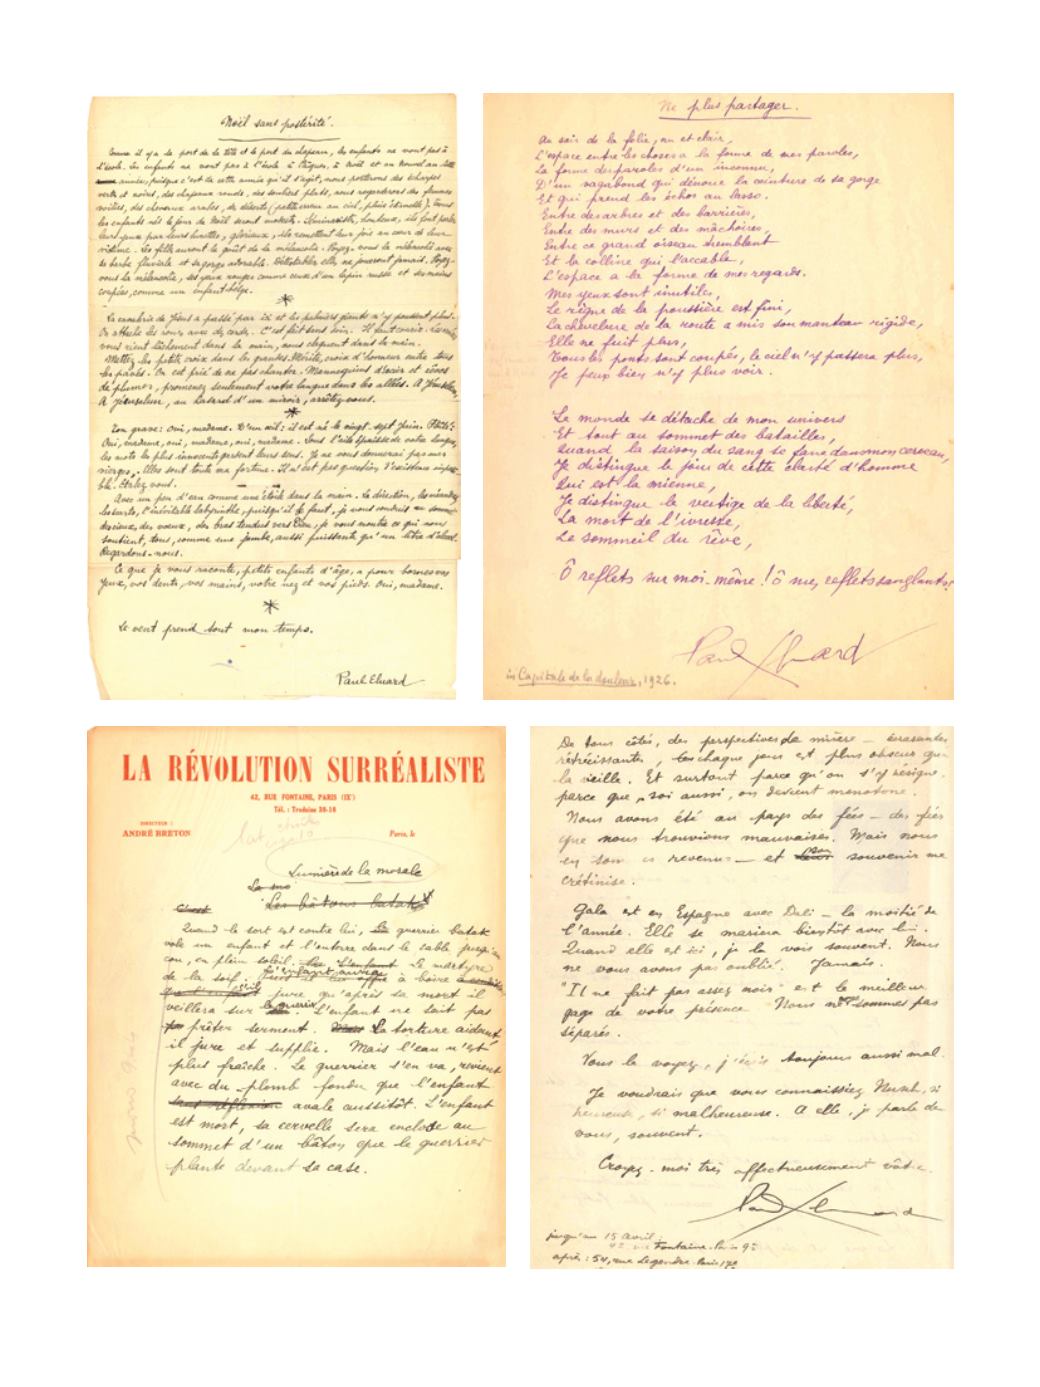 Noël sans postérité.
Comme il y a le port de la tête et le port du chapeau, les enfants ne vont pas à
l'école. Les enfants ne vont pas à l'école à Pâques, à Noël et au Nouvel an
année, puisque c'est de cette année qu'il s'agit, nous porterons des écharpes
vertes et noires, des chapeaux ronds, des souliers plats, nous regarderons des femmes
voilées, des chevaux arabes, de déserts (petite sœur au ciel, pluie éternelle).
les enfants nés le jour de Noël seront modestes. honteux, ils font parler
leurs yeux par leurs lunettes, glorieux, ils remettent leur joie au cœur de leur
victime. Les filles auront le goût de la mélancolie. Voyez-vous la mélancolie avec
sa barbe fluviale et sa gorge adorable. Détestables elles ne joueront jamais. Voyez-
vous la mélancolie, ses yeux rouges comme ceux d'un lapin russe et ses mains
coupées, comme un enfant belge.
La cavalerie de Jésus a passé par ici et les palmiers géants n'y poussent plus.
On attache les roues avec des cordes. C'est fait sans soin. Il faut courir.
vous rient lâchement dans la main, nous claquent dans la main.
Mettez les petites croix dans les grandes. Mérite, croix d'honneur entre tous
les pavés. On est prié de ne pas chanter. Mannequins d'acier et rêves
de plumes, promenez seulement votre langue dans les allées. A Jérusalem,
A Jérusalem, au hasard d'un miroir, arrêtez-vous.
Ton grave: oui, madame. D'un œil: il est né le vingt-sept Juin.
Oui, madame, oui, madame, oui, madame. Sous l'aile épaisse de votre langue,
les mots les plus innocents perdent leur sens. Je ne vous donnerai pas mes
vierges. Elles sont toute ma fortune. Il n'est pas question d'existence
Étalez-vous.
Avec un peu d'eau comme une étoile dans la main. La direction, les méandres,
les sorts, l'inévitable labyrinthe, puisqu'il le faut, je vous conduis au sommet
des cieux, des vœux, des bras tendus vers Dieu, je vous montre ce qui nous
soutient, tous, comme une jambe, aussi puissante qu'un litre d'alcool.
Regardons-nous.
Ce que je vous raconte, petits enfants d'âge, a pour bornes vos
yeux, vos dents, vos mains, votre nez et vos pieds. Oui, madame.
Le vent prend tout mon temps.
Paul Eluard
Ne plus partager.
Au soir de la folie, nu et clair,
L'espace entre les choses a la forme de mes paroles,
La forme des paroles d'un inconnu,
D'un vagabond qui dénoue la ceinture de sa gorge
Et qui prend les échos au lasso.
Entre des arbres et des barrières,
Entre des murs et des mâchoires,
Entre ce grand oiseau tremblant
Et la colline qui l'accable,
L'espace a la forme de mes regards.
Mes yeux sont inutiles,
Le règne de la poussière est fini,
La chevelure de la route a mis son manteau rigide,
Elle ne fuit plus,
Tous les ponts sont coupés, le ciel n'y passera plus,
Je peux bien n'y plus voir.
Le monde se détache de mon univers
Et tout au sommet des batailles,
Quand la saison du sang se fane dans mon cerveau,
Je distingue le jour de cette clarté d'homme
Qui est la mienne,
Je distingue le vertige de la liberté,
La mort de l'ivresse,
Le sommeil du rêve,
Ô reflets sur moi-même! ô mes reflets sanglants!
Paul Eluard
in Capitale de la douleur, 1926.
LA RÉVOLUTION SURRÉALISTE
42, RUE FONTAINE, PARIS (IXe)
Tél. : Trudaine 38-18
DIRECTEUR :
ANDRÉ BRETON
Paris, le
Lumière de la morale
La mo
Les bâtons batak
C'est
Quand le sort est contre lui, le guerrier batak
vole un enfant et l'enterre dans le sable jusqu'au
cou, en plein soleil. L'enfant Le martyre
de la soif. à boire
que l'enfant s'il jure qu'après sa mort il
veillera sur le guerrier. L'enfant ne sait pas
prêter serment. La torture aidant
il jure et supplie. Mais l'eau n'est
plus fraîche. Le guerrier s'en va, revient
avec du plomb fondu que l'enfant
sans réflexion avale aussitôt. L'enfant
est mort, sa cervelle sera enclose au
sommet d'un bâton que le guerrier
plante devant sa case.
De tous côtés, des perspectives de misère — écrasantes
rétrécissantes, chaque jour est plus obscur que
la veille. Et surtout parce qu'on s'y résigne,
parce que, soi aussi, on devient monotone.
Nous avons été au pays des fées — des fées
que nous trouvions mauvaises. Mais nous
en sommes revenus — et son souvenir me
crétinise.
Gala est en Espagne avec Dali — la moitié de
l'année. Elle se mariera bientôt avec lui.
Quand elle est ici, je la vois souvent. Nous
ne nous avons pas oublié. Jamais.
"Il ne fait pas assez noir" est le meilleur
gage de votre présence. Nous ne sommes pas
séparés.
Vous le voyez, j'écris toujours aussi mal.
Je voudrais que vous connaissiez Nusch, si
heureuse, si malheureuse. A elle, je parle de
vous, souvent.
Croyez-moi très affectueusement vôtre.
Paul Eluard
jusqu'au 15 avril:
42 rue Fontaine. Paris 9e
après: 54, rue Legendre. Paris 17e